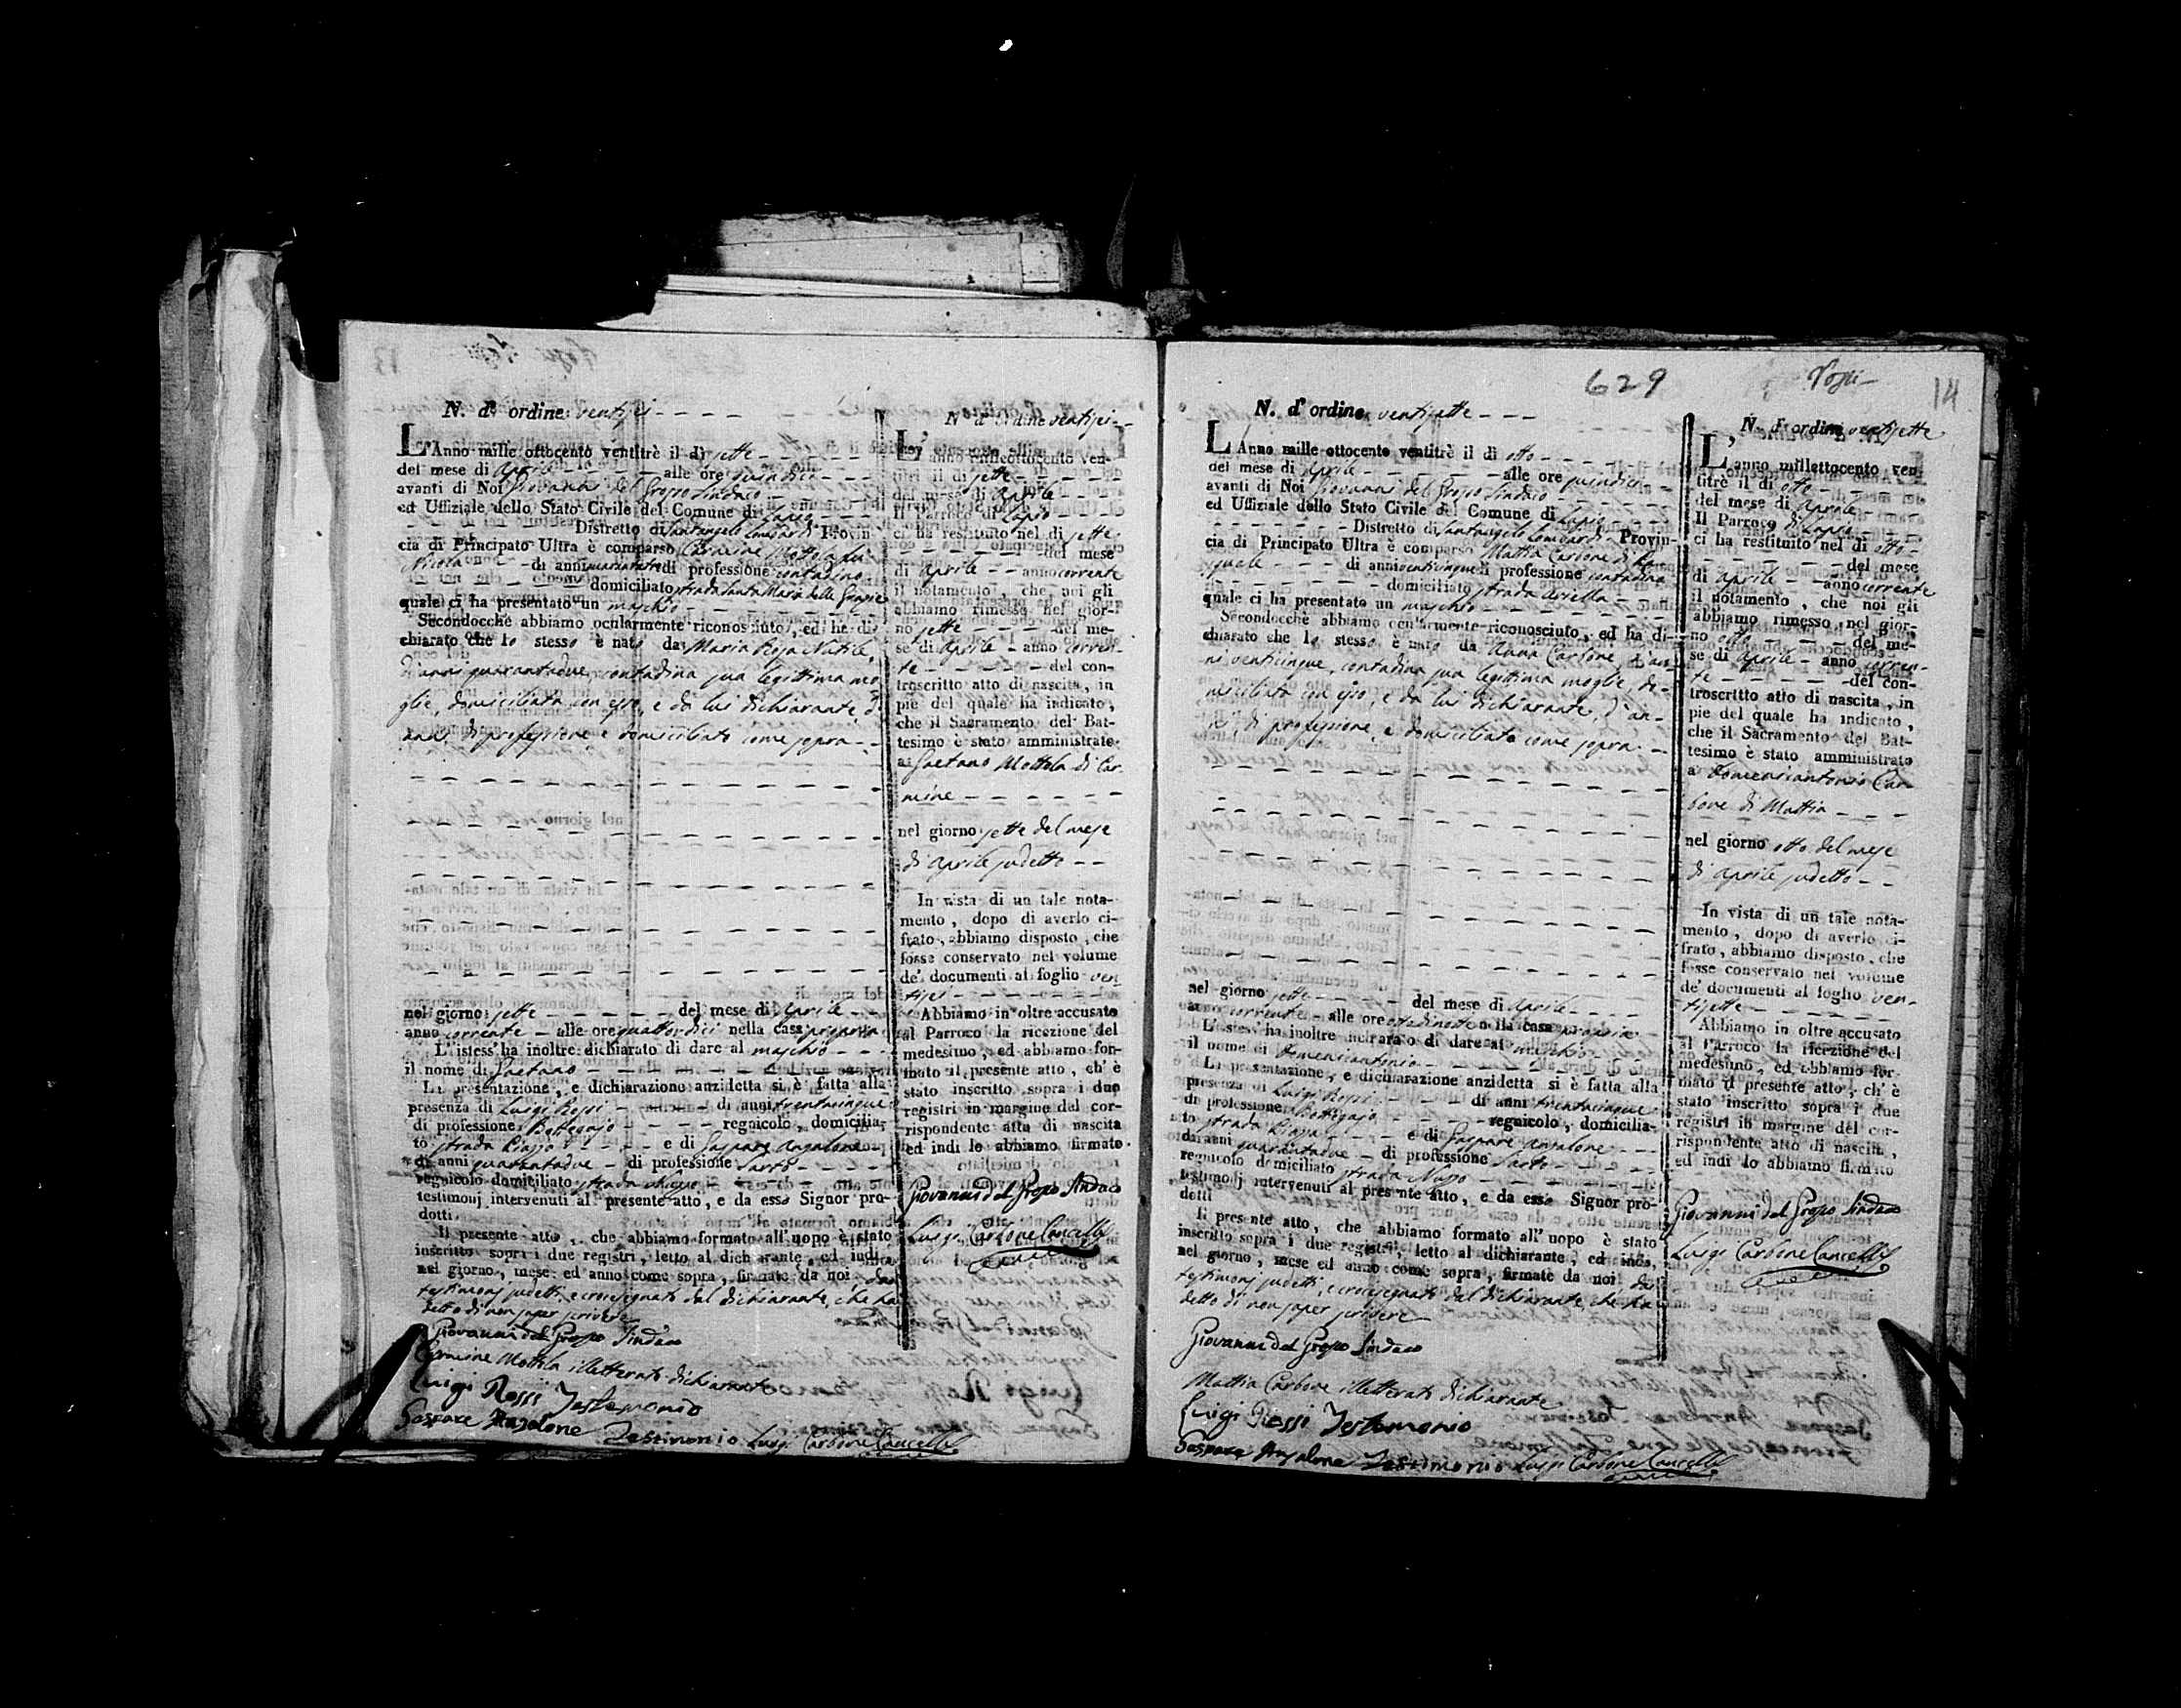 N. d'ordine ventisei
L'Anno mille ottocento ventitrè il dì sette
del mese di Aprile alle ore quindici
avanti di Noi Giovanni del Grosso Sindaco
ed Uffiziale dello Stato Civile del Comune di Lapio
Distretto di Santangelo Lombardi Provin-
cia di Principato Ultra è comparso Carmine Mottola fu
Nicola di anni quarantatre di professione contadino
domiciliato strada Santa Maria delle Grazie
quale ci ha presentato un maschio
Secondocchè abbiamo ocularmente riconosciuto, ed ha di-
chiarato che lo stesso è nato da Maria Rosa
d'anni quarantadue, contadina sua legittima mo-
glie, domiciliata con esso, e da lui dichiarante, d'
anni, di professione e domiciliato come sopra
nel giorno sette del mese di Aprile
anno corrente alle ore quattordici nella casa propria
L'istess' ha inoltre dichiarato di dare al maschio
il nome di Gaetano
La presentazione, e dichiarazione anzidetta si è fatta alla
presenza di Luigi Rossi di anni trentacinque
di professione Bottegajo regnicolo, domicilia-
to strada Piazza e di Gaspare Anzalone
di anni quarantadue di professione Sarto
regnicolo domiciliato strada
testimonj intervenuti al presente atto, e da esso Signor pro-
dotti.
Il presente atto, che abbiamo formato all' uopo è stato
inscritto sopra i due registri, letto al dichiarante, ed indi
nel giorno, mese ed anno come sopra, firmato da noi dai
testimonj sudetti, e crocesegnato dal dichiarante, che ha
detto di non saper scrivere
Giovanni del Grosso Sindaco
Carmine Mottola illetterato dichiarante
Luigi Rossi Testimonio
Gaspare Anzalone Testimonio Luigi Carbone Cancell
N d'ordine ventisei
L' anno milleottocento ven-
titrè il dì sette
del mese di Aprile
Il Parroco di Lapio
ci ha restituito nel dì sette
del mese
di Aprile anno corrente
il notamento, che noi gli
abbiamo rimesso nel gior-
no sette del me-
se di Aprile anno corren-
te del con-
troscritto atto di nascita, in
pie del quale ha indicato,
che il Sacramento del Bat-
tesimo è stato amministrato
a Gaetano Mottola di Car-
mine
nel giorno sette del mese
di Aprile sudetto
In vista di un tale nota-
mento, dopo di averlo ci-
frato, abbiamo disposto, che
fosse conservato nel volume
de' documenti al foglio ven-
tisei
Abbiamo in oltre accusato
al Parroco la ricezione del
medesimo, ed abbiamo for-
mato il presente atto, ch' è
stato inscritto sopra i due
registri in margine del cor-
rispondente atto di nascita
ed indi lo abbiamo firmato
Giovanni del Grosso Sindaco
Luigi Carbone Cancell
629
14
N. d'ordine ventisette
L'Anno mille ottocento ventitrè il dì otto
del mese di Aprile alle ore quindici
avanti di Noi Giovanni del Grosso Sindaco
ed Uffiziale dello Stato Civile del Comune di Lapio
Distretto di Santangelo Lombardi Provin-
cia di Principato Ultra è comparso Mattia Carbone di Pa-
squale di anni venticinque di professione contadino
domiciliato strada Ariella
quale ci ha presentato un maschio
Secondocchè abbiamo ocularmente riconosciuto, ed ha di-
chiarato che lo stesso è nato da Anna Carbone, d'an-
ni venticinque, contadina sua legittima moglie, do-
miciliata con esso, e da lui dichiarante, d'an-
ni, di professione, e domiciliato come sopra
nel giorno sette del mese di Aprile
anno corrente alle ore nella casa propria
L'istess' ha inoltre dichiarato di dare al maschio
il nome di Domenicantonio
La presentazione, e dichiarazione anzidetta si è fatta alla
presenza di Luigi Rossi di anni trentacinque
di professione Bottegajo regnicolo, domicilia-
to strada Piazza e di Gaspare Anzalone
di anni quarantadue di professione Sarto
regnicolo domiciliato strada
testimonj intervenuti al presente atto, e da esso Signor pro-
dotti
Il presente atto, che abbiamo formato all' uopo è stato
inscritto sopra i due registri, letto al dichiarante, ed indi,
nel giorno, mese ed anno come sopra, firmato da noi dai
testimonj sudetti, e crocesegnato dal dichiarante, che ha
detto di non saper scrivere
Giovanni del Grosso Sindaco
Mattia Carbone illetterato dichiarante
Luigi Rossi Testimonio
Gaspare Anzalone Testimonio Luigi Carbone Cancell
N. d'ordine ventisette
L' anno millottocento ven-
titrè il dì otto
del mese di Aprile
Il Parroco di Lapio
ci ha restituito nel dì otto
del mese
di Aprile anno corrente
il notamento, che noi gli
abbiamo rimesso nel gior-
no otto del me-
se di Aprile anno corren-
te del con-
troscritto atto di nascita, in
pie del quale ha indicato,
che il Sacramento del Bat-
tesimo è stato amministrato
a Domenicantonio Car-
bone di Mattia
nel giorno otto del mese
di Aprile sudetto
In vista di un tale nota-
mento, dopo di averlo ci-
frato, abbiamo disposto, che
fosse conservato nel volume
de' documenti al foglio ven-
tisette
Abbiamo in oltre accusato
al Parroco la ricezione del
medesimo, ed abbiamo for-
mato il presente atto, ch' è
stato inscritto sopra i due
registri in margine del cor-
rispondente atto di nascita,
ed indi lo abbiamo firmato
Giovanni del Grosso Sindaco
Luigi Carbone Cancell